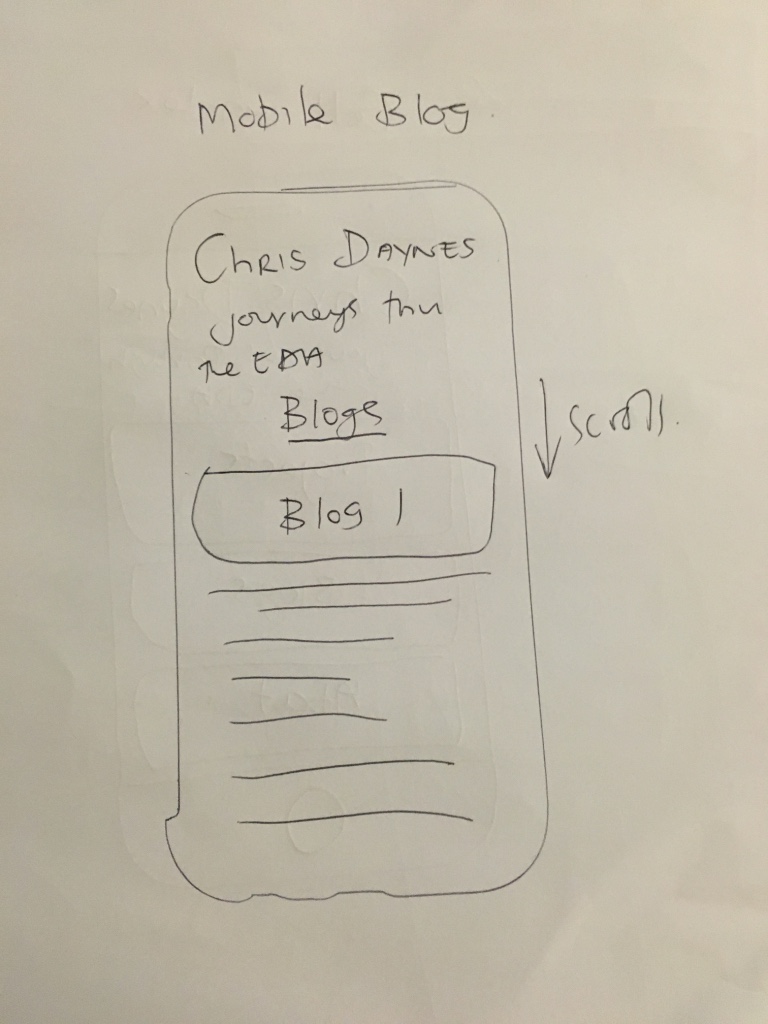 Mobile Blog.
CHRIS DAYNES
journeys thru
the EDA
Blogs
Blog 1
scroll.